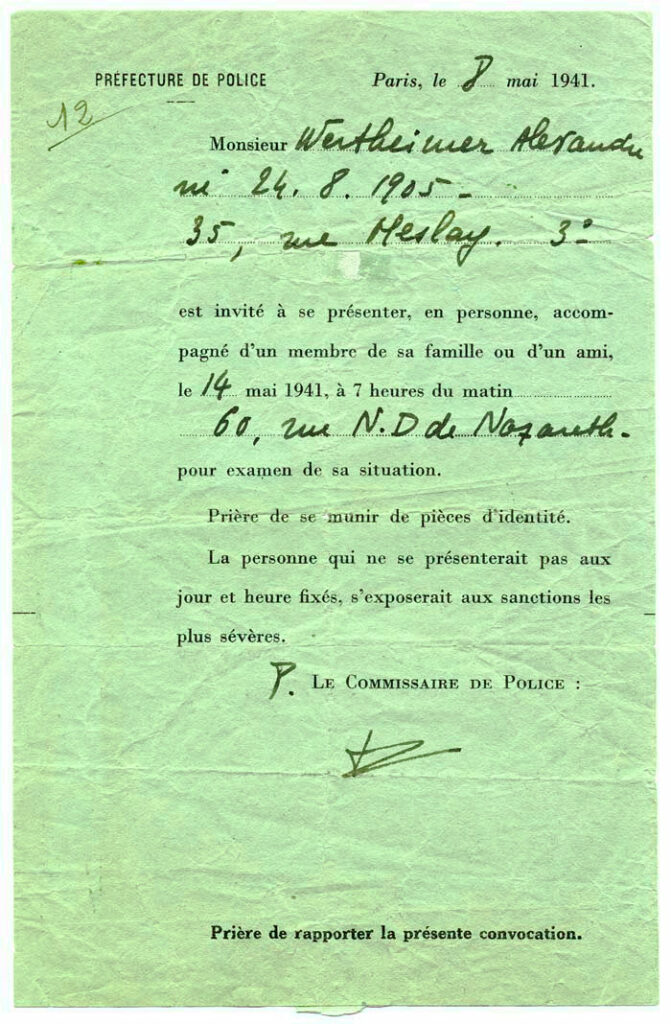 PRÉFECTURE DE POLICE
Paris, le 8 mai 1941.
12
Monsieur Wertheimer Alexandre
né 24. 8. 1905 -
35, rue Meslay. 3º
est invité à se présenter, en personne, accom-
pagné d'un membre de sa famille ou d'un ami,
le 14 mai 1941, à 7 heures du matin
60, rue N.D de Nazareth.
pour examen de sa situation.
Prière de se munir de pièces d'identité.
La personne qui ne se présenterait pas aux
jour et heure fixés, s'exposerait aux sanctions les
plus sévères.
P. LE COMMISSAIRE DE POLICE :
Prière de rapporter la présente convocation.